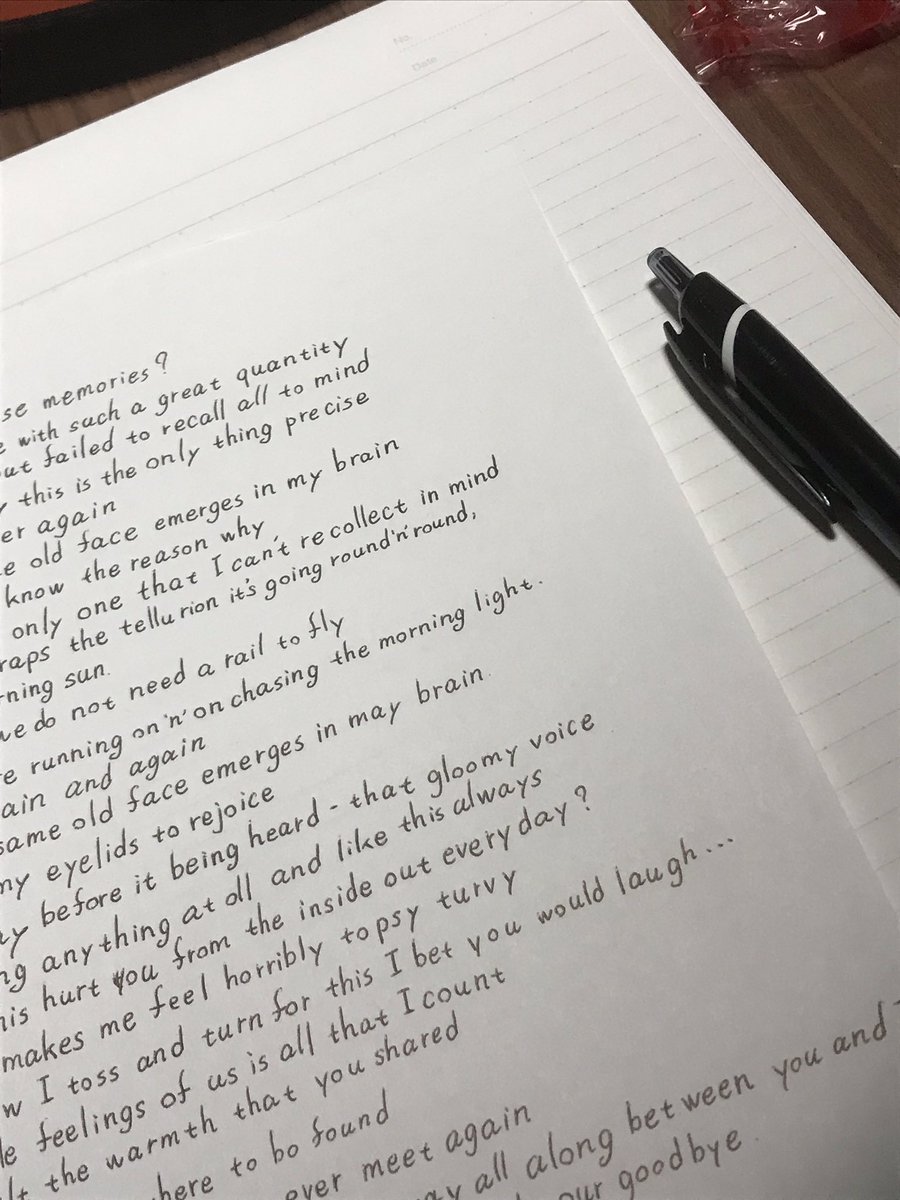 No.
Date
se memories?
e with such a great quantity
ut failed to recall all to mind
y this is the only thing precise
er again
e old face emerges in my brain
know the reason why
only one that I can't recollect in mind
raps the tellurion it's going round'n'round,
rning sun.
we do not need a rail to fly
e running on'n'on chasing the morning light.
ain and again
same old face emerges in may brain.
my eyelids to rejoice
ay before it being heard - that gloomy voice
ng anything at all and like this always
his hurt you from the inside out every day?
makes me feel horribly topsy turvy
w I toss and turn for this I bet you would laugh...
le feelings of us is all that I count
lt the warmth that you shared
here to bo found
ever meet again
ay all along between you and
our goodbye.